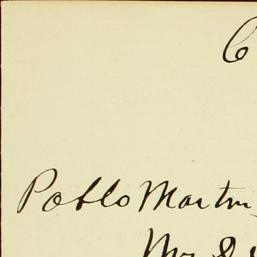 C
Pablo Martin
Mr &